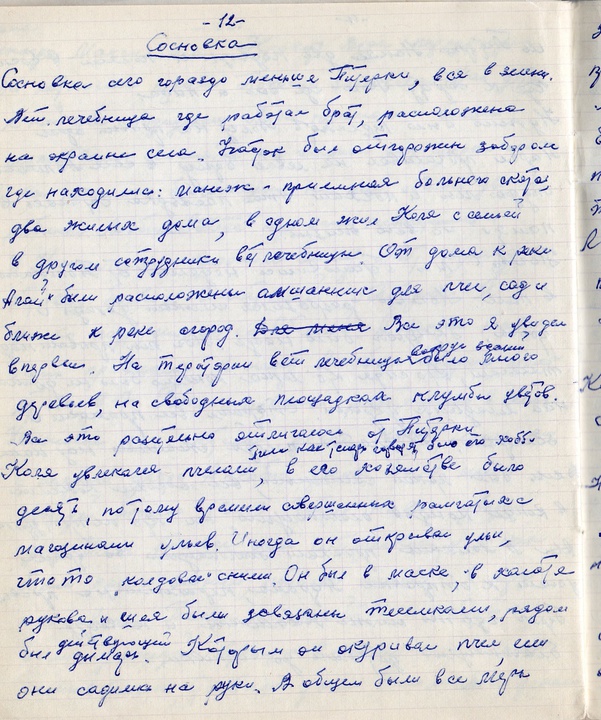 -12-
Сосновка
Сосновка село гораздо меньше Питерки, все в зелени.
Вет. лечебница где работал брат, расположена
на окраине села. Участок был отгорожен забором
где находились: манеж - приемная больного скота,
два жилых дома, в одном жил Коля с семьей
в другом сотрудники вет лечебницы. От дома к реки
были расположены омшанник для пчел, сад и
ближе к реке огород. Для меня Все это я увидел
впервые. На територии вет лечебницы вокруг зданий было много
деревьев, на свободных площадках клумбы цветов.
Все это разительно отличалось от Питерки
Коля увлекался пчелами, было как теперь говорят было его хобби в его хозяйстве было
десять, по тому времени совершенных рамчатых с
магазинами ульев. Иногда он открывал ульи,
что то "колдовал" с ними. Он был в маске, в халате
рукова и шея были завязаны тесемками, рядом
был действующий дымарь. Которым он окуривал пчел, если
они садились на руки. В общем были все меры